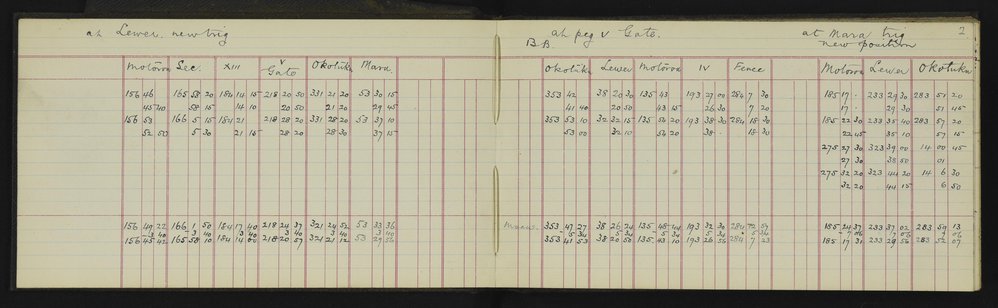 at Lewer. new trig
at peg V Gate.
at Mara trig 2
B.B. new position
Motoroa Sec. XIII V Gate Okotuku Mara
Okotuku Lewer Motoroa IV Fence
Motoroa Lewer Okotuku
156 46 165 58 20 184 14 15 218 20 50 331 21 20 53 30 15
353 42 38 20 30 135 43 193 27 00 284 7 30
185 17 - 233 29 30 283 51 20
45 40 58 15 14 10 20 50 21 20 29 45
41 40 20 50 43 15 26 30 7 20
17 - 29 30 51 45
156 53 166 5 15 184 21 218 28 20 331 28 20 53 37 10
353 53 10 32 32 15 135 54 20 193 38 30 284 18 30
185 22 30 233 35 40 283 57 20
52 50 5 30 21 15 28 20 28 30 37 15
53 00 32 10 54 20 38 - 18 30
22 45 35 10 57 15
275 27 30 323 39 00 14 00 45
27 30 38 50 01
275 32 20 323 44 20 14 6 30
32 20 44 15 6 50
156 49 22 166 1 50 184 17 40 218 24 37 321 24 52 53 33 36
Means 353 47 27 38 26 24 135 48 193 32 30
185 24 37 233 37 02 283 59 13
3 40 3 40 3 40 3 40 3 40 3 40
5 34 5 34 5 34 5 34 5 34
7 06 7 06 7 06
156 45 42 165 58 10 184 14 00 218 20 57 321 21 12 53 29 56
353 41 53 38 20 50 135 43 10 193 26 56 284 7 23
185 17 31 233 29 56 283 52 07